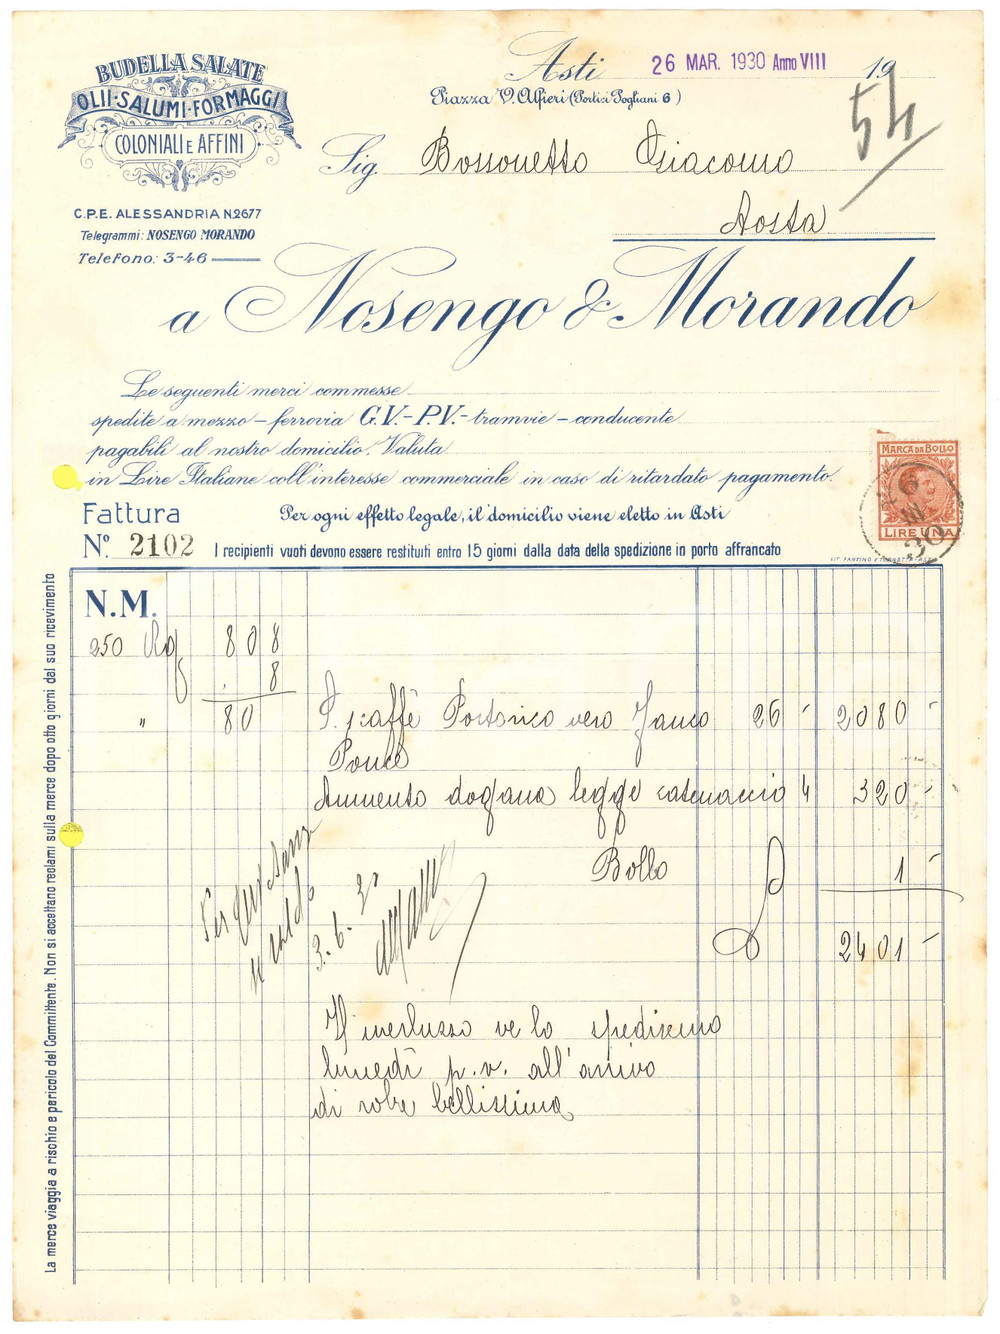 BUDELLA SALATE
OLII·SALUMI·FORMAGGI
COLONIALI E AFFINI
C.P.E. ALESSANDRIA N.2677
Telegrammi: NOSENGO MORANDO
Telefono: 3-46
Asti 26 MAR. 1930 Anno VIII 19
Piazza V. Alfieri (Portici Pogliani 6)
54
Sig. Bossonetto Giacomo
Aosta
a Nosengo & Morando
Le seguenti merci commesse
spedite a mezzo – ferrovia G.V.-P.V.- tramvie – conducente
pagabili al nostro domicilio. Valuta
in Lire Italiane coll'interesse commerciale in caso di ritardato pagamento.
MARCA DA BOLLO
LIRE UNA
Fattura
Per ogni effetto legale, il domicilio viene eletto in Asti
N.º 2102
I recipienti vuoti devono essere restituiti entro 15 giorni dalla data della spedizione in porto affrancato
N.M.
250 Kg 808
8
" 80 caffè Portorico vero Jauco 26 - 2080 -
Ponce
Aumento dogana legge catenaccio 4 320 -
Bollo 1 -
2401 -
Per
saldo
3.6.30
Il merluzzo ve lo spediremo
lunedì p.v. all'arrivo
di robe bellissima
La merce viaggia a rischio e pericolo del Committente. Non si accettano reclami sulla merce dopo otto giorni dal suo ricevimento